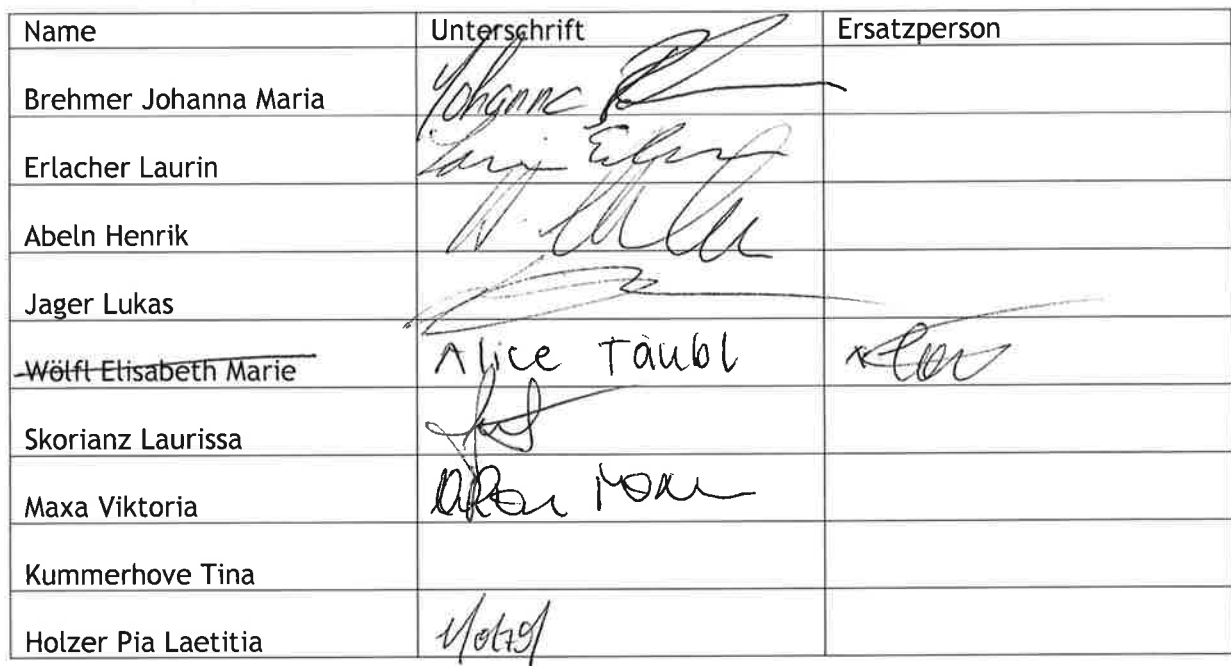 Name Unterschrift Ersatzperson
Brehmer Johanna Maria Johanna
Erlacher Laurin
Abeln Henrik
Jager Lukas
Wölfl Elisabeth Marie Alice Täubl
Skorianz Laurissa
Maxa Viktoria
Kummerhove Tina
Holzer Pia Laetitia